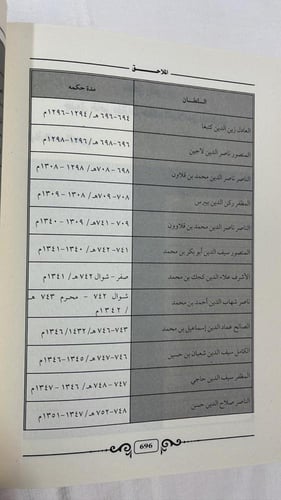 الملاحـــق
السلطـــان مدة حكمه
العادل زين الدين كتبغا ٦٩٤-٦٩٦هـ/ ١٢٩٤-١٢٩٦م
المنصور ناصر الدين لاجين ٦٩٦-٦٩٨هـ/ ١٢٩٦-١٢٩٨م
الناصر ناصر الدين محمد بن قلاون ٦٩٨-٧٠٨هـ/ ١٢٩٨ - ١٣٠٨م
المظفر ركن الدين بيبرس ٧٠٨-٧٠٩هـ/ ١٣٠٨ - ١٣٠٩م
الناصر ناصر الدين محمد بن قلاوون ٧٠٩-٧٤١هـ/ ١٣٠٩ - ١٣٤٠م
المنصور سيف الدين أبو بكر بن محمد ٧٤١-٧٤٢هـ/ ١٣٤٠-١٣٤١م
الأشرف علاء الدين كجك بن محمد صفر - شوال ٧٤٢هـ/ ١٣٤١م
الناصر شهاب الدين أحمد بن محمد شوال ٧٤٢ - محرم ٧٤٣ هـ
/ ١٣٤٢م
الصالح عماد الدين إسماعيل بن محمد ٧٤٣-٧٤٦هـ/ ١٤٣٢/ ١٣٤٦م
الكامل سيف الدين شعبان بن حسين ٧٤٦-٧٤٧هـ/ ١٣٤٥-١٣٤٦م
المظفر سيف الدين حاجي ٧٤٧-٧٤٨هـ/ ١٣٤٦ - ١٣٤٧م
الناصر صلاح الدين حسن ٧٤٨-٧٥٢هـ/ ١٣٤٧-١٣٥١م
696